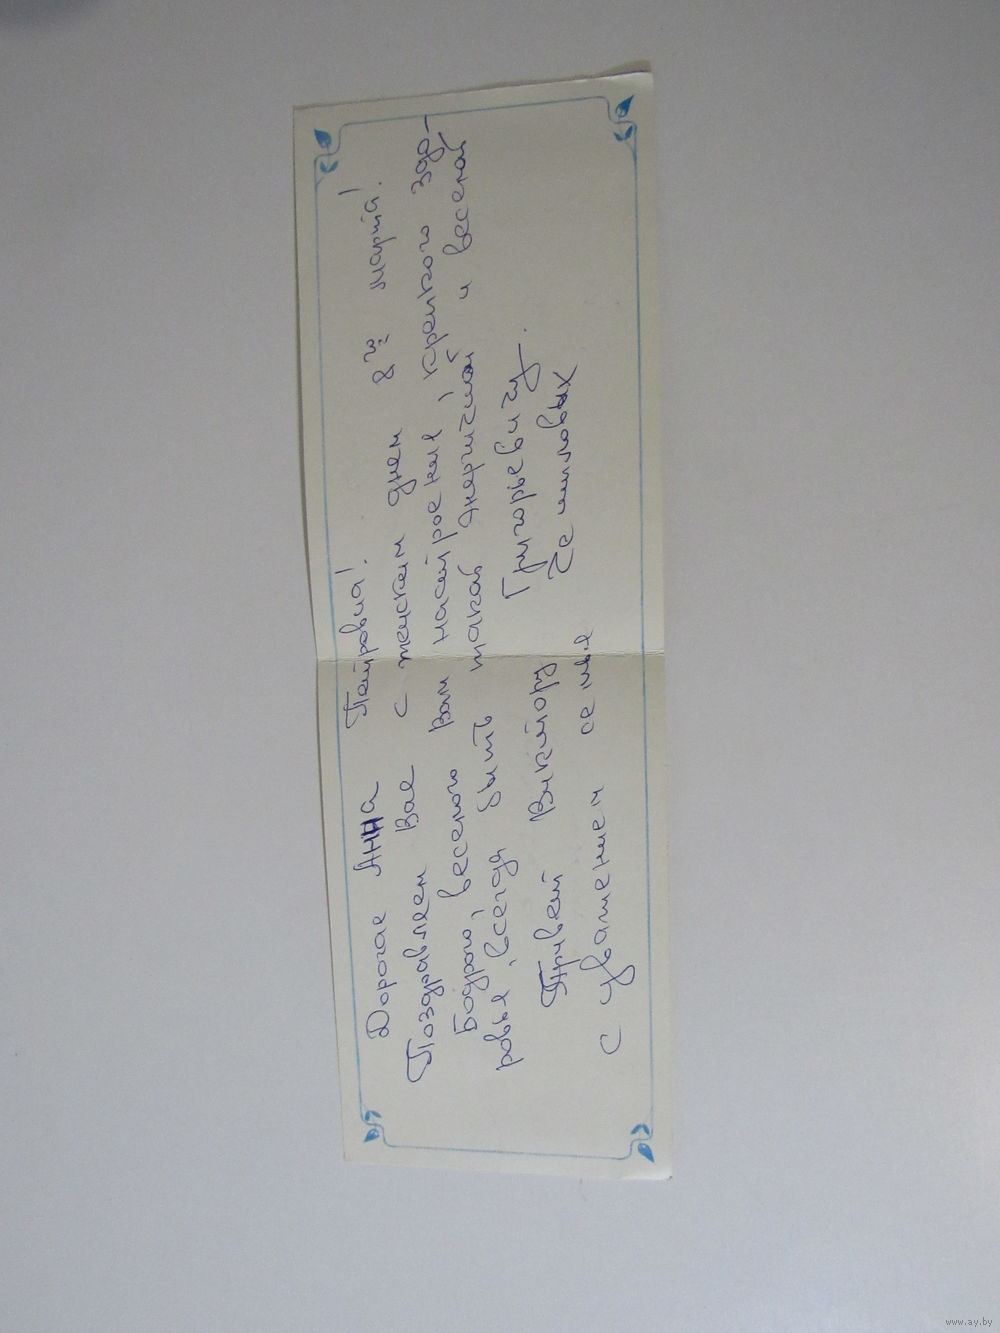 Дорогая Анна Петровна!
Поздравляем Вас с женским днем 8го марта!
Бодрого, веселого Вам настроения, крепкого здо-
ровья, всегда быть такой энергичной и веселой
Привет Виктору Григорьевичу.
С уважением семья
www.ay.by